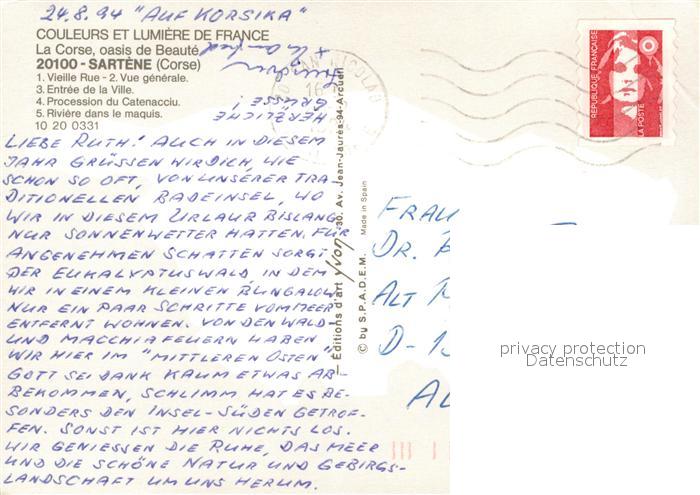 24.8.94 "AUF KORSIKA"
COULEURS ET LUMIÈRE DE FRANCE
La Corse, oasis de Beauté
20100 - SARTÈNE (Corse)
1. Vieille Rue - 2. Vue générale.
3. Entrée de la Ville.
4. Procession du Catenacciu.
5. Rivière dans le maquis.
10 20 0331
HERZLICHE
GRÜSSE!
LIEBE RUTH! AUCH IN DIESEM
JAHR GRÜSSEN WIR DICH, WIE
SCHON SO OFT, VON UNSERER TRA-
DITIONELLEN BADEINSEL, WO
WIR IN DIESEM URLAUB BISLANG
NUR SONNENWETTER HATTEN. FÜR
ANGENEHMEN SCHATTEN SORGT
DER EUKALYPTUSWALD, IN DEM
WIR IN EINEM KLEINEN BUNGALOW
NUR EIN PAAR SCHRITTE VOM MEER
ENTFERNT WOHNEN. VON DEN WALD
UND MACCHIAFEUERN HABEN
WIR HIER IM "MITTLEREN OSTEN"
GOTT SEI DANK KAUM ETWAS AB
BEKOMMEN, SCHLIMM HAT ES BE-
SONDERS DEN INSEL-SÜDEN GETROF-
FEN. SONST IST HIER NICHTS LOS.
WIR GENIESSEN DIE RUHE, DAS MEER
UND DIE SCHÖNE NATUR UND GEBIRGS-
LANDSCHAFT UM UNS HERUM.
Éditions d'art yvon 30, Av. Jean-Jaurès-94-Arcueil
© by S.P.A.D.E.M. Made in Spain
RÉPUBLIQUE FRANÇAISE
LA POSTE
FRAU
DR.
ALT
D-
privacy protection
Datenschutz